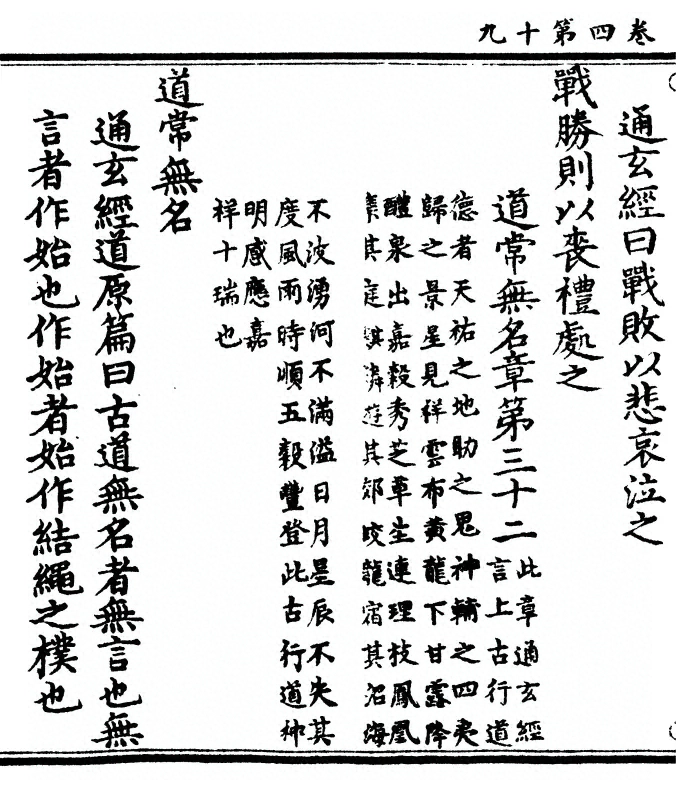 卷四第十九
通玄經曰戰敗以悲哀泣之
戰勝則以喪禮處之
道常無名章第三十二
此章通玄經
言上古行道
德者天祐之地助之鬼神輔之四夷
歸之景星見祥雲布黃龍下甘露降
醴泉出嘉穀秀芝草生連理枝鳳凰
其庭麒麟遊其郊蛟龍宿其沼海
不波湧河不滿溢日月星辰不失其
度風雨時順五穀豐登此古行道神
明感應嘉
祥十瑞也
道常無名
通玄經道原篇曰古道無名者無言也無
言者作始也作始者始作結繩之樸也